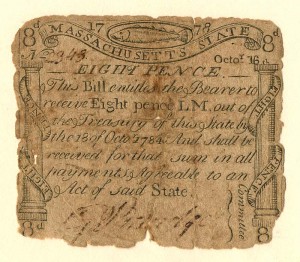 8d 17 78 8d
MASSACHUSETTS STATE
Octor. 18.
EIGHT PENCE
This Bill entitles the Bearer to
receive Eight pence L.M. out of
the Treasury of this State by
the 18 of Octr. 1784. And shall be
received for that sum in all
payments Agreeable to an
Act of said State.
Committee
EIGHT
PENCE
EIGHT
PENCE
8d 8d